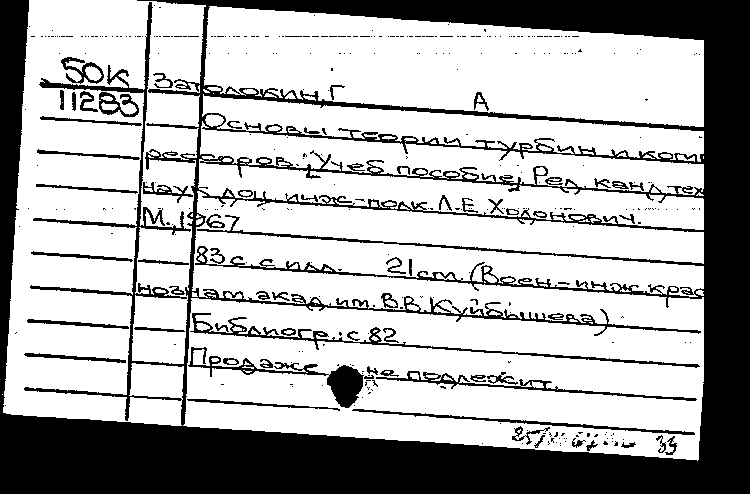 50К Затолокин, Г А
11283
Основы теории турбин и комп
рессоров. [Учеб пособие]. Ред. канд. тех
наук доц. инж-полк. Л.Е. Ходонович.
М., 1967.
83 с. с илл. 21 cm. (Воен-инж. крас
нознам. акад. им. В.В. Куйбышева)
Библиогр.: с. 82.
Продаже не подлежит.
33